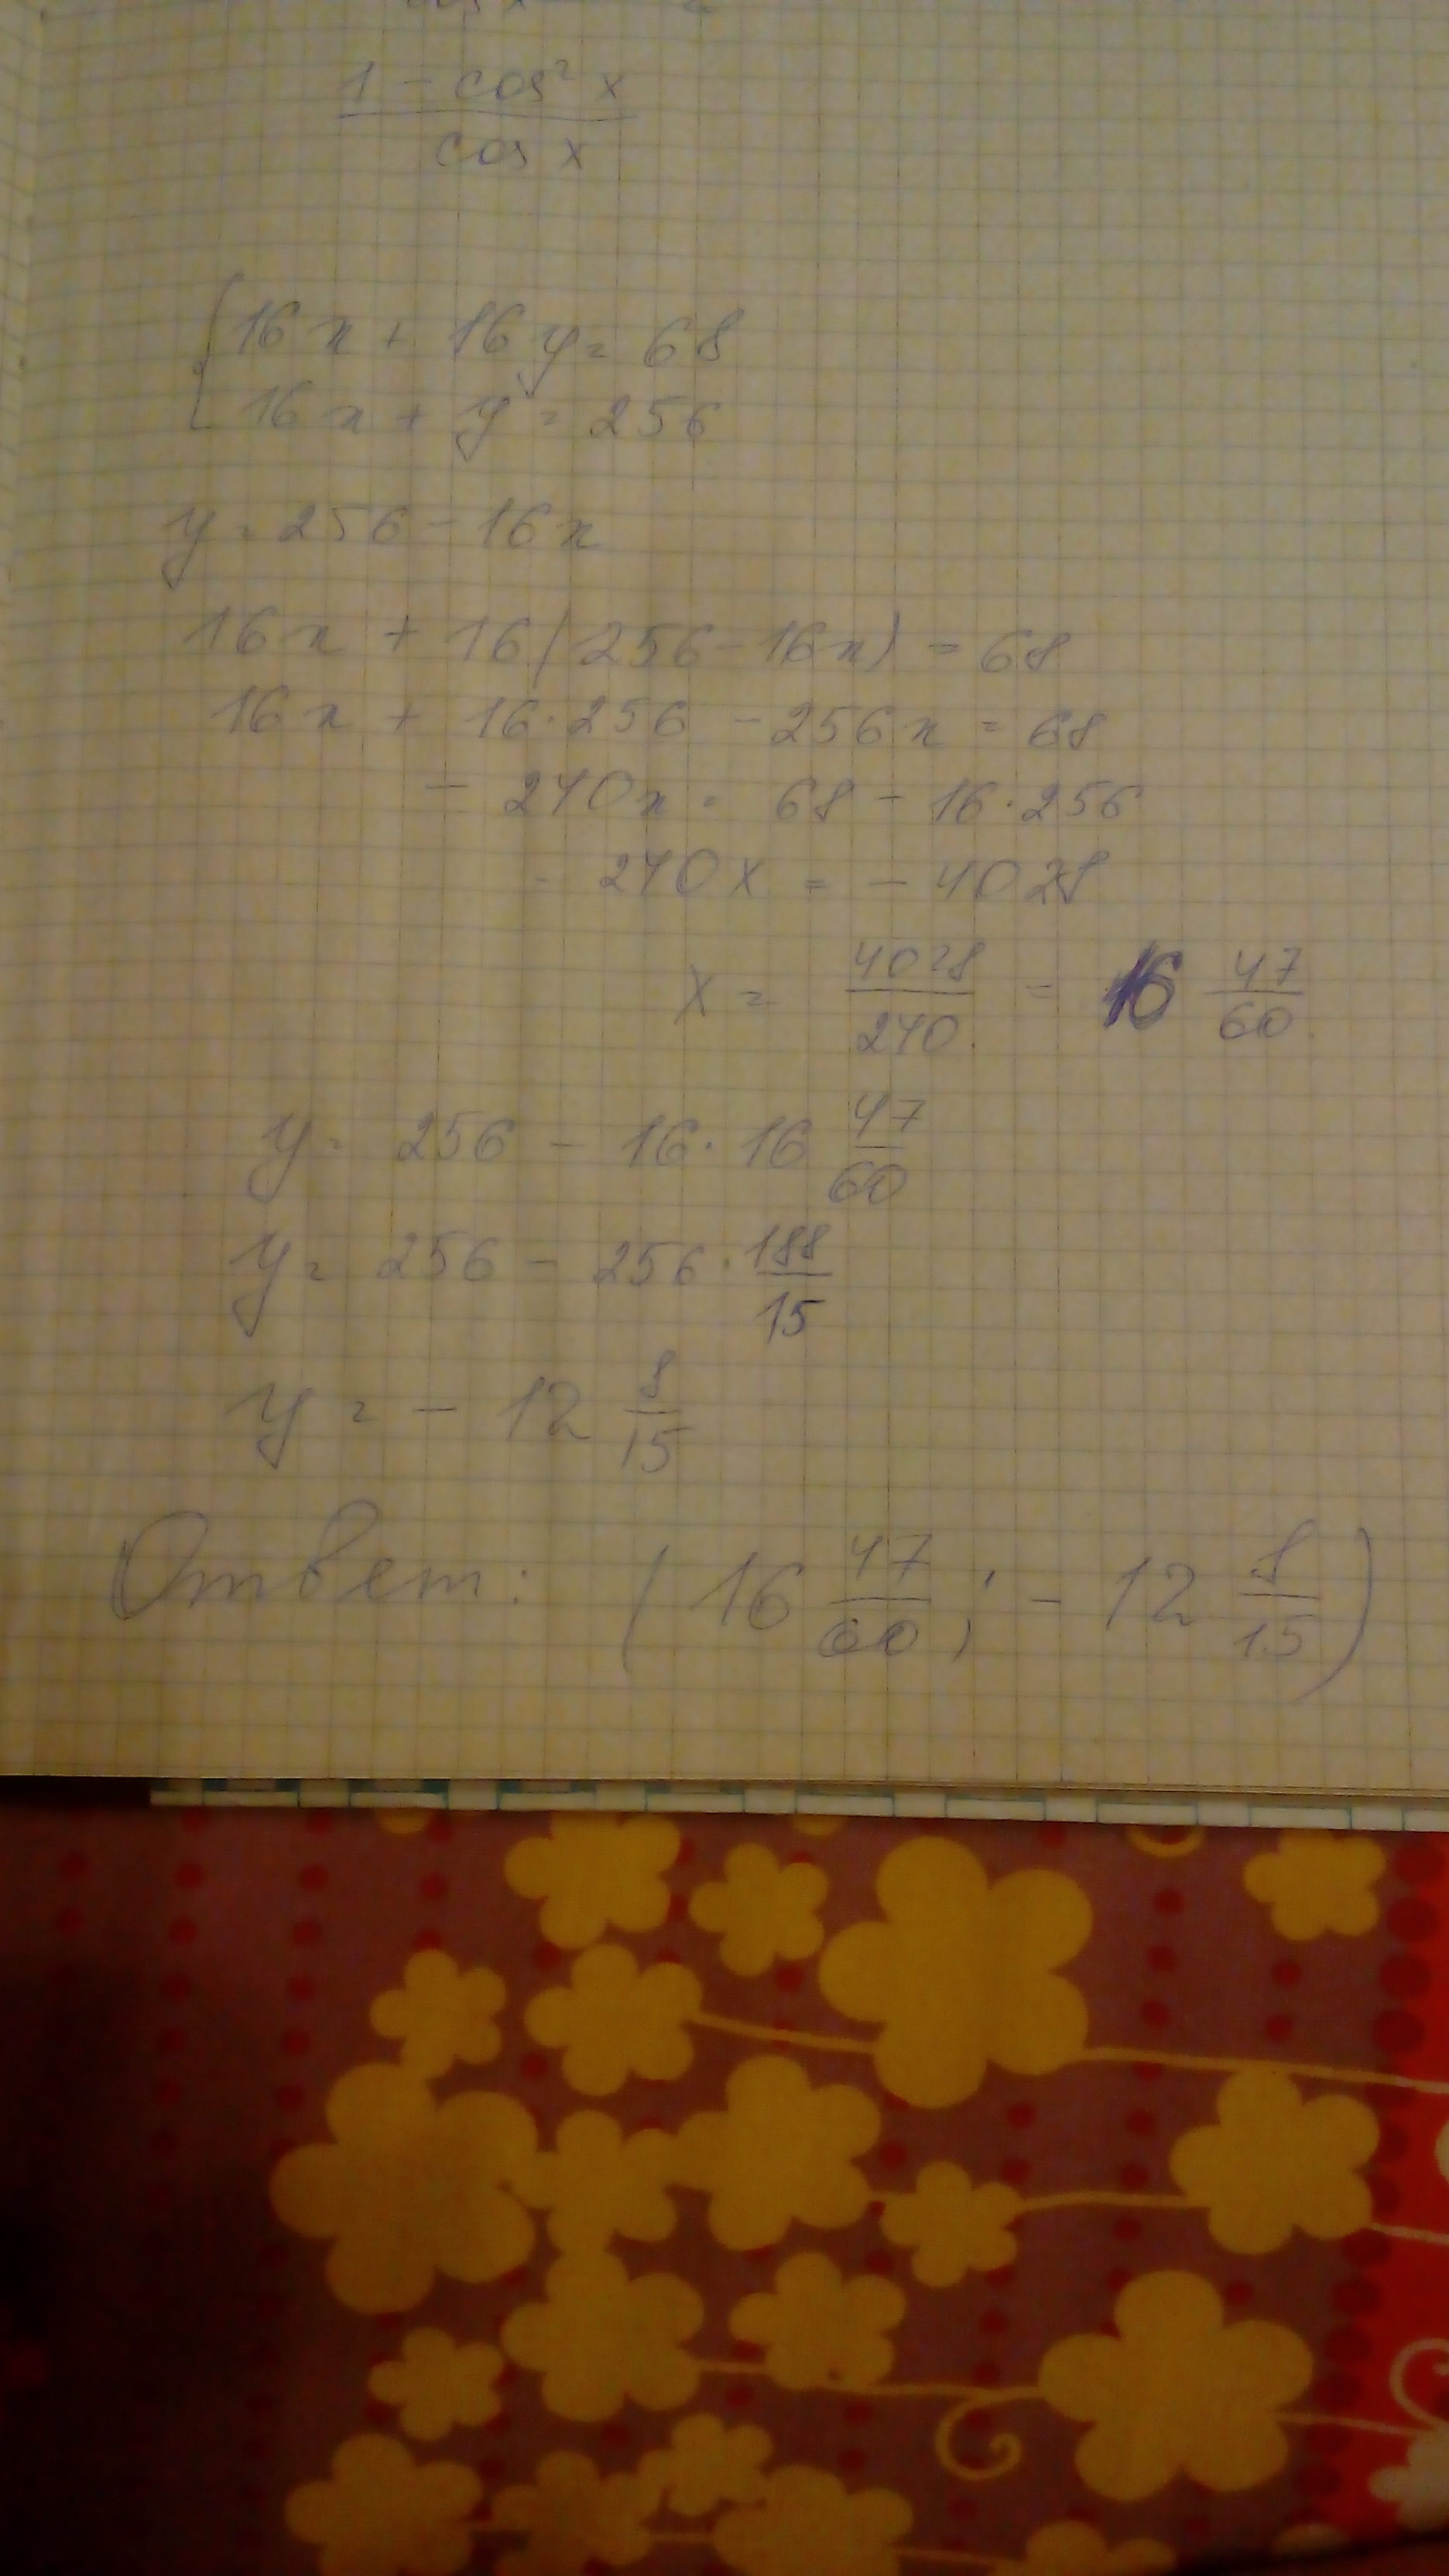 1 - cos² x
cos x
{ 16x + 16y = 68
16x + y = 256
y = 256 - 16x
16x + 16(256 - 16x) = 68
16x + 16·256 - 256x = 68
- 240x = 68 - 16·256
- 240x = - 4028
x = 4028/240 = 16 47/60
y = 256 - 16·16 47/60
y = 256 - 256·188/15
y = - 12 8/15
Ответ: (16 47/60; - 12 8/15)